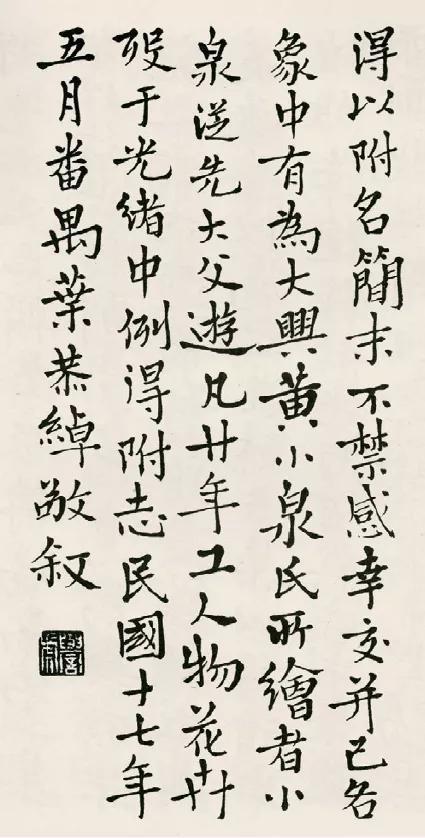 得以附名簡末不禁感幸交并已名
象中有為大興黃小泉氏所繪者小
泉從先大父遊凡廿年工人物花卉
歿于光緒中例得附志民國十七年
五月番禺葉恭綽敬敘